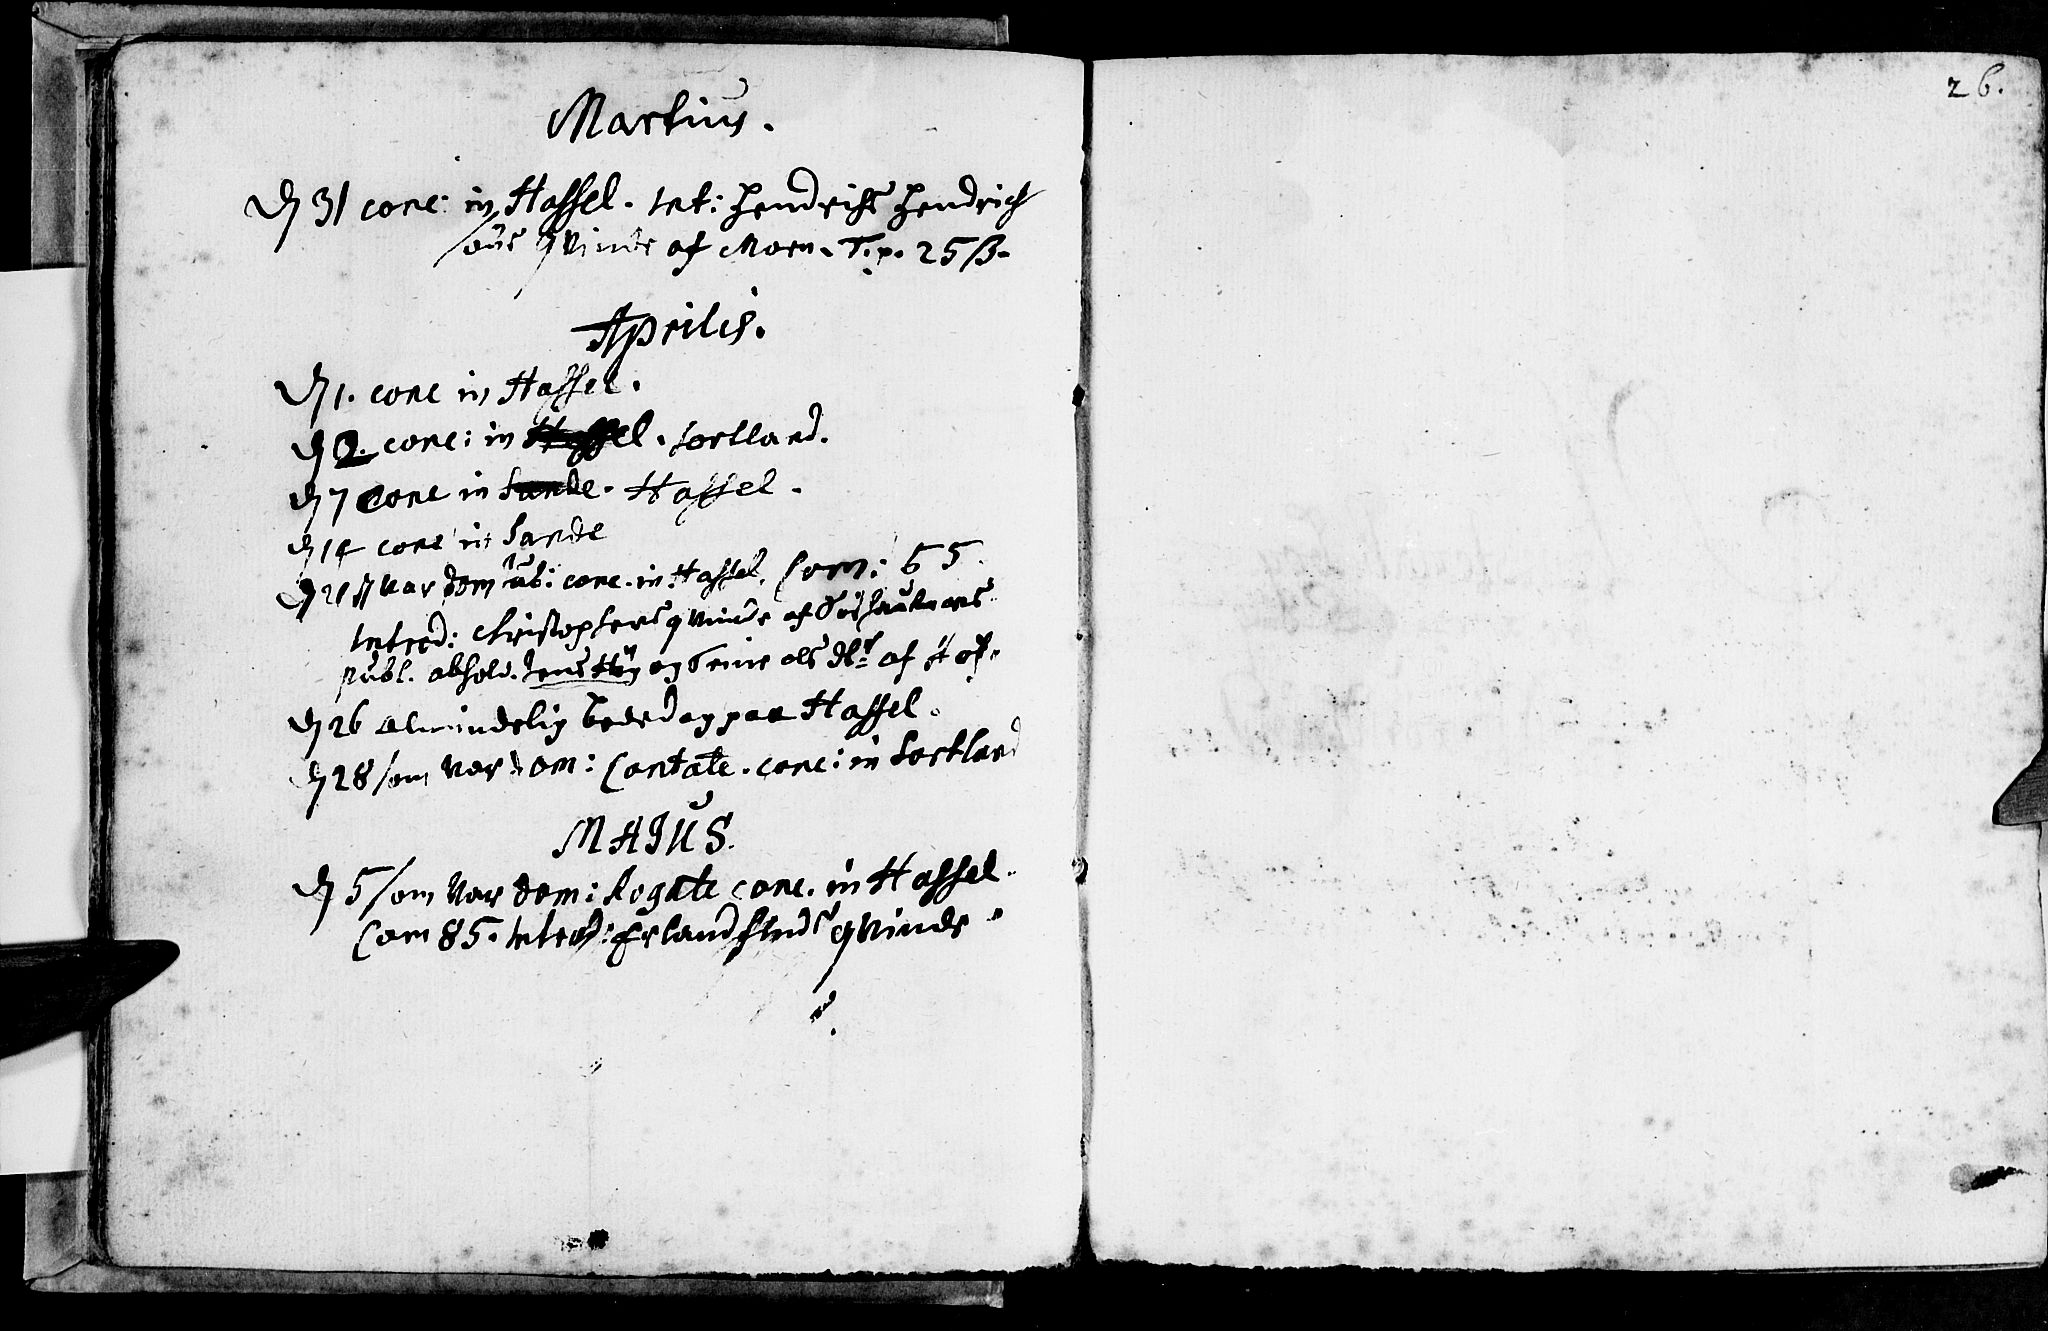 Martius.
D 31 conc: in Hassel. Int: Hendrichs Hendrich
søns qvinde af Moen. T.p. 25 ß.
Aprilis.
D 1. conc in Hassel.
D 2. conc: in Hassel. Sortland.
D 7 conc in Sande. Hassel.
D 14 conc in Sande
D 21 var dom Jub: conc. in Hassel. Com: 65.
Introd: Christophers qvinde af
publ. absolv. Jens og af
D 26 almindelig Bededag paa Hassel.
D 28 som var dom: Cantate. conc: in Sortland
MAJUS.
D 5 som var dom: Rogate conc. in Hassel.
Com 85. Introd: Erland qvinde.
26.